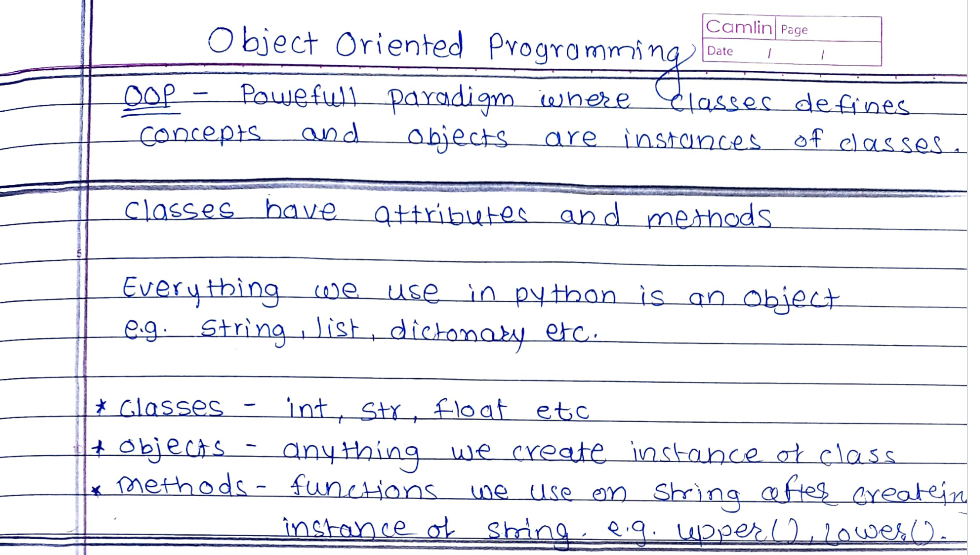 Camlin Page
Date / /
Object Oriented Programming
OOP - Powefull paradigm where classes defines
concepts and objects are instances of classes.
classes have attributes and methods
Everything we use in python is an object
e.g. string, list, dictonary etc.
* classes - int, str, float etc
* objects - anything we create instance of class
* methods - functions we use on string after createin
instance of string. e.g. upper(), lower().